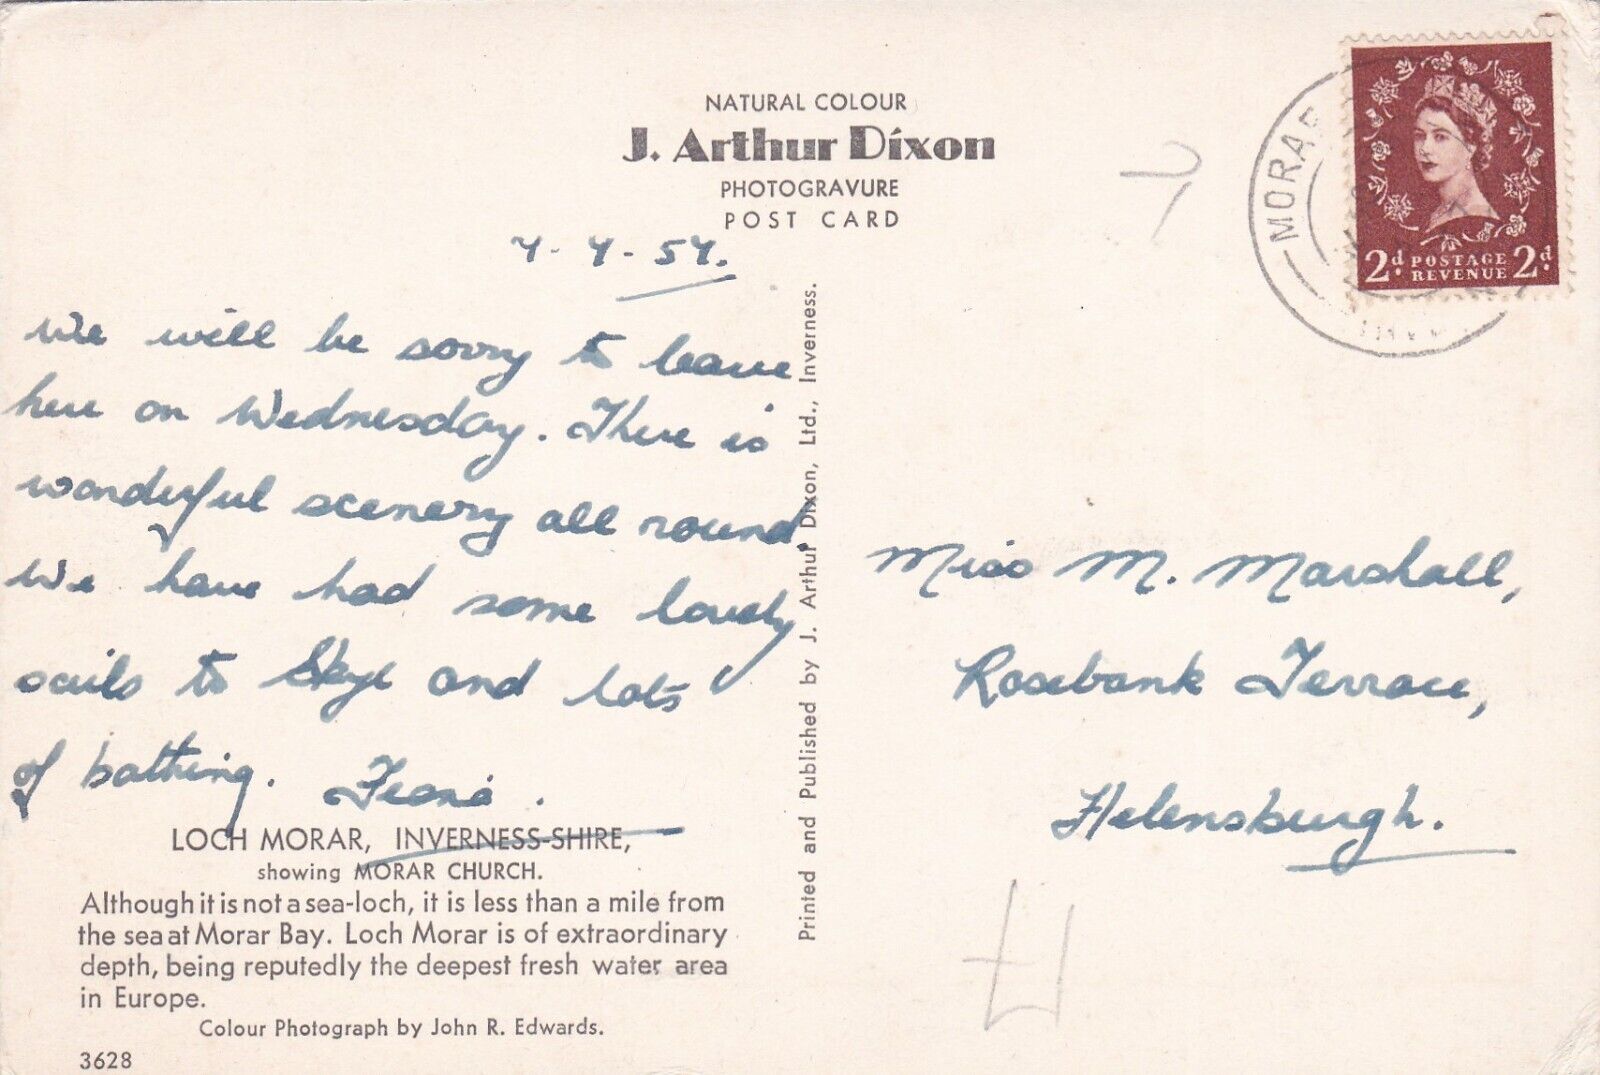 NATURAL COLOUR
J. Arthur Dixon
PHOTOGRAVURE
POST CARD
7-7-57.
We will be sorry to leave
here on Wednesday. There is
wonderful scenery all round.
We have had some lovely
sails to Skye and lots
of bathing. Fiona.
LOCH MORAR, INVERNESS-SHIRE,
showing MORAR CHURCH.
Although it is not a sea-loch, it is less than a mile from
the sea at Morar Bay. Loch Morar is of extraordinary
depth, being reputedly the deepest fresh water area
in Europe.
Colour Photograph by John R. Edwards.
3628
Printed and Published by J. Arthur Dixon, Ltd., Inverness.
MORAR
2d. POSTAGE REVENUE 2d.
Miss M. Marshall,
Rosebank Terrace,
Helensburgh.